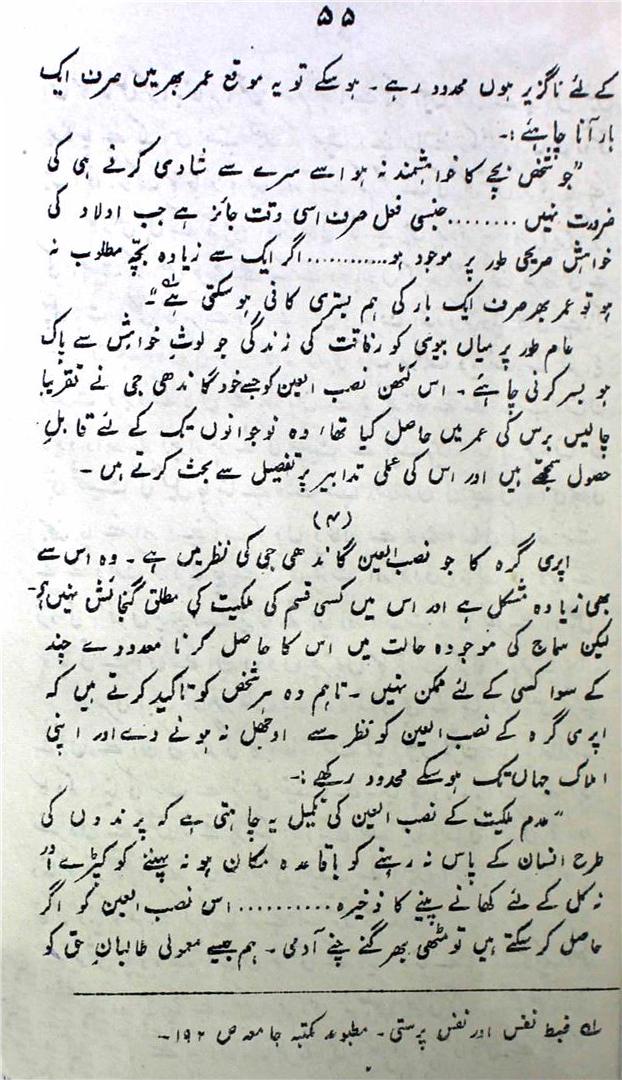 ۵۵
کے لئے ناگزیر ہوں محدود رہے۔ ہوسکے تو یہ موقع عمر بھر میں صرف ایک
بار آنا چاہئے:۔
”جو شخص بچے کا خواہشمند نہ ہو اسے سرے سے شادی کرنے ہی کی
ضرورت نہیں ........ جنسی فعل صرف اسی وقت جائز ہے جب اولاد کی
خواہش صریحی طور پر موجود ہو............ اگر ایک سے زیادہ بچہ مطلوب نہ
ہو تو عمر بھر صرف ایک بار کی ہم بستری کافی ہو سکتی ہے“۔ ؎۱
عام طور پر میاں بیوی کو رفاقت کی زندگی جو لوثِ خواہش سے پاک
ہو بسر کرنی چاہئے۔ اس کٹھن نصب العین کو جسے خود گاندھی جی نے تقریباً
چالیس برس کی عمر میں حاصل کیا تھا، وہ نوجوانوں تک کے لئے قابلِ
حصول سمجھتے ہیں اور اس کی عملی تدابیر پر تفصیل سے بحث کرتے ہیں۔
(۴)
اپری گرہ کا جو نصب العین گاندھی جی کی نظر میں ہے۔ وہ اس سے
بھی زیادہ مشکل ہے اور اس میں کسی قسم کی ملکیت کی مطلق گنجائش نہیں ہے۔
لیکن سماج کی موجودہ حالت میں اس کا حاصل کرنا معدودے چند
کے سوا کسی کے لئے ممکن نہیں۔ تاہم وہ ہر شخص کو تاکید کرتے ہیں کہ
اپری گرہ کے نصب العین کو نظر سے اوجھل نہ ہونے دے اور اپنی
املاک جہاں تک ہوسکے محدود رکھے:۔
”عدم ملکیت کے نصب العین کی تکمیل یہ چاہتی ہے کہ پرندوں کی
طرح انسان کے پاس نہ رہنے کو باقاعدہ مکان ہو نہ پہننے کو کپڑے اور
نہ کل کے لئے کھانے پینے کا ذخیرہ .......... اس نصب العین کو اگر
حاصل کر سکتے ہیں تو مٹھی بھر گنے چنے آدمی۔ ہم جیسے معمولی طالبانِ حق کو
؎۱ ضبط نفس اور نفس پرستی۔ مطبوعہ مکتبہ جامعہ ص ۱۹۲۔